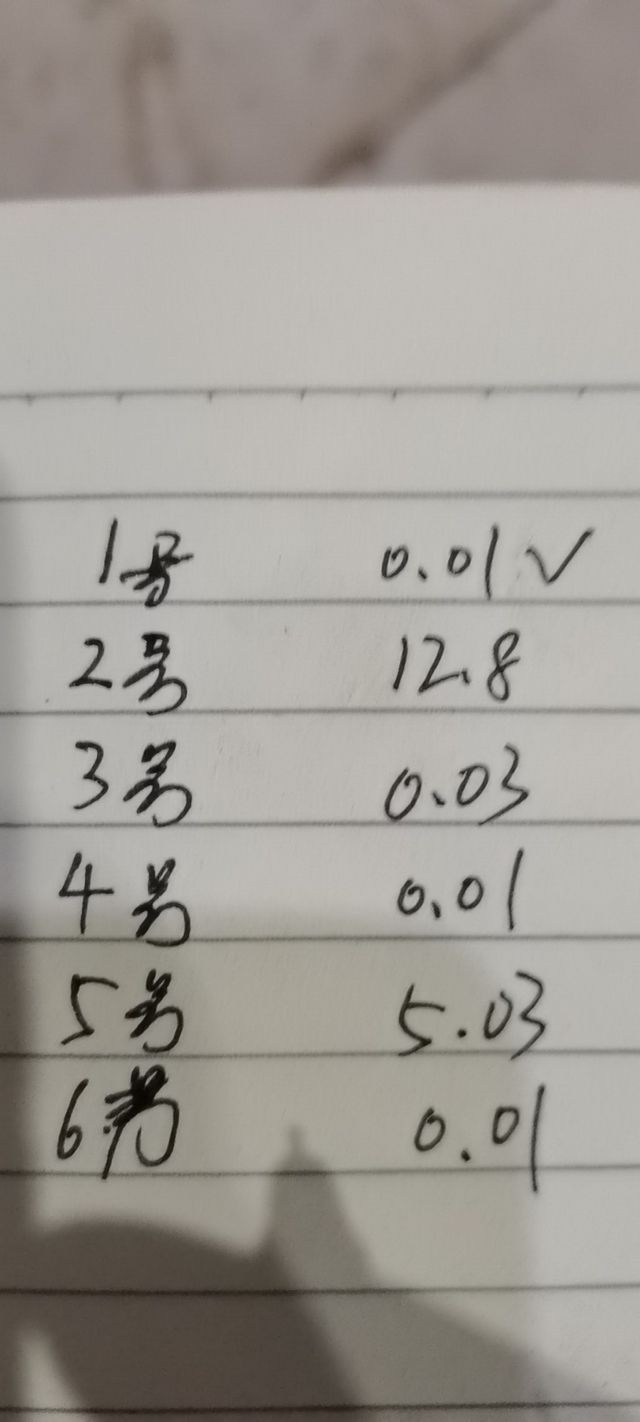 1号 0.01V
2号 12.8
3号 0.03
4号 0.01
5号 5.03
6号 0.01